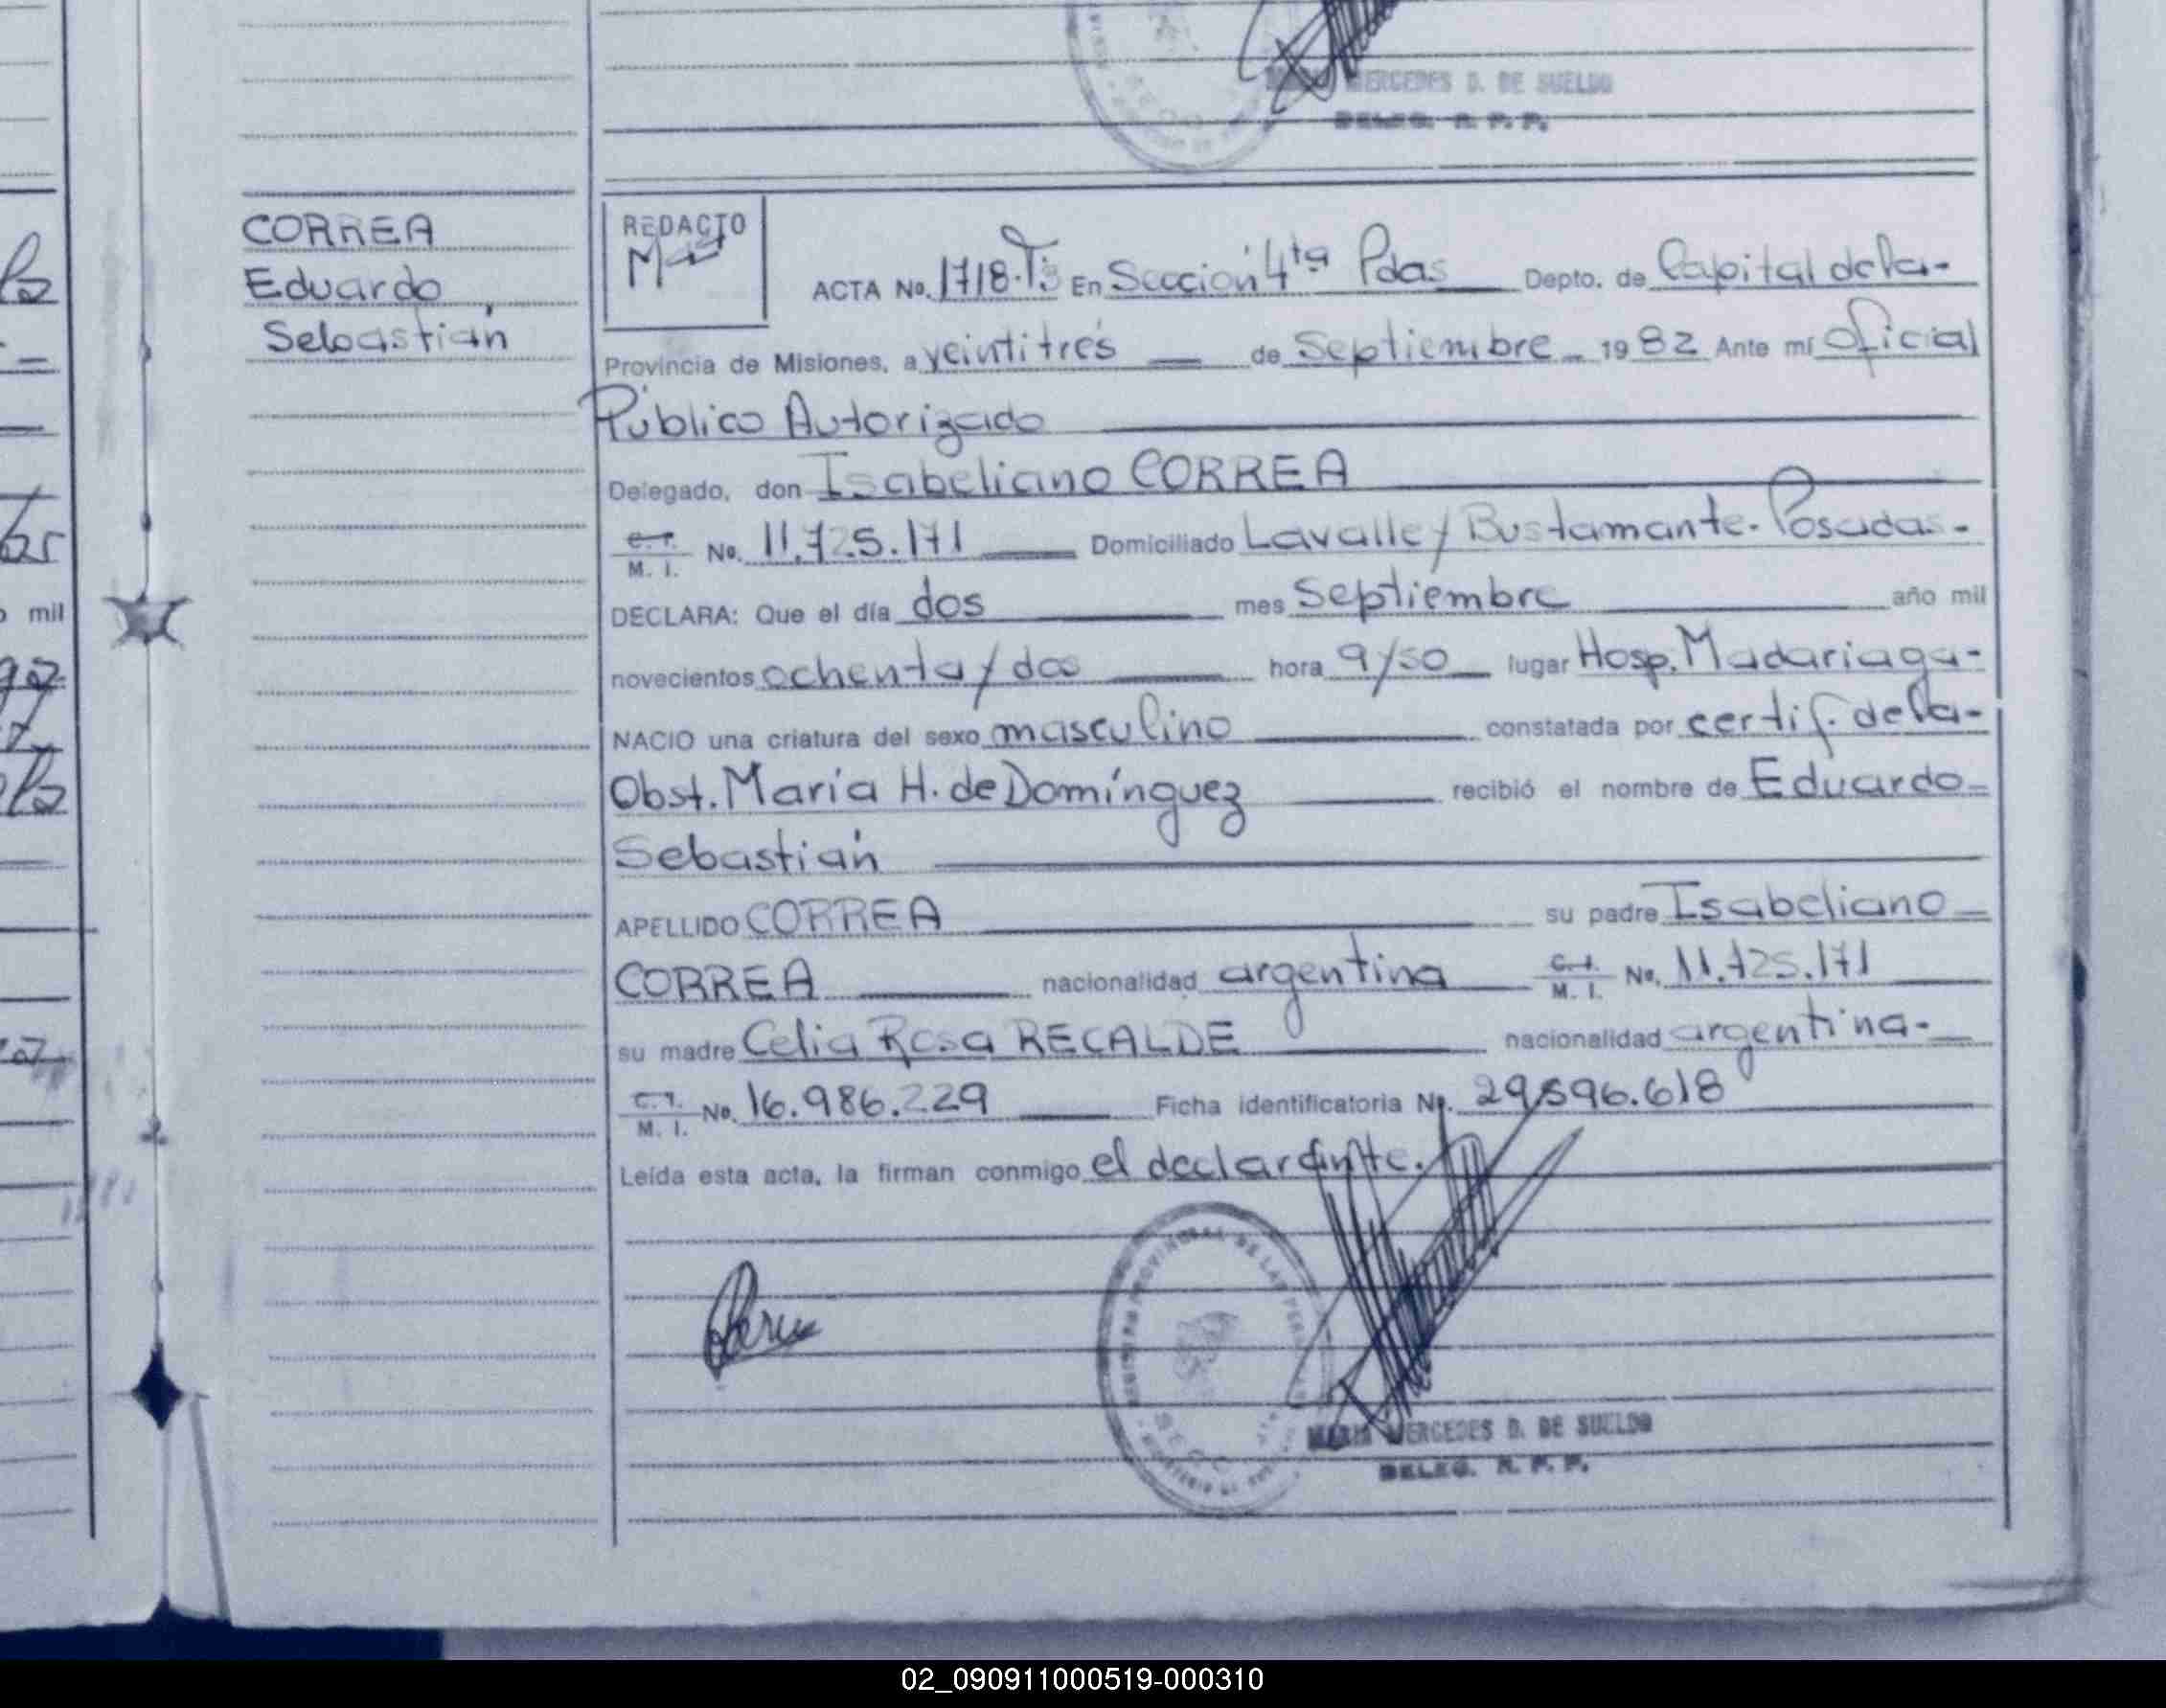 MERCEDES D. DE SUELDO
DELEG. R. P. P.
CORREA
Eduardo
Sebastián
REDACTO
ACTA No. 1718.Tº3 En Sección 4ta Pdas Depto. de Capital de la-
Provincia de Misiones, a veintitrés de Septiembre 1982 Ante mí Oficial
Público Autorizado
Delegado, don Isabeliano CORREA
C. I. / M. I. No. 11.725.171 Domiciliado Lavalle y Bustamante. Posadas.-
DECLARA: Que el día dos mes Septiembre año mil
novecientos ochenta y dos hora 9/50 lugar Hosp. Madariaga-
NACIO una criatura del sexo masculino constatada por certif. de la-
Obst. María H. de Domínguez recibió el nombre de Eduardo
Sebastián
APELLIDO CORREA su padre Isabeliano
CORREA nacionalidad argentina C. I. / M. I. No. 11.725.171
su madre Celia Rosa RECALDE nacionalidad argentina.-
C. I. / M. I. No. 16.986.229 Ficha identificatoria No. 29.596.618
Leída esta acta, la firman conmigo el declarante.
MARIA MERCEDES D. DE SUELDO
DELEG. R. P. P.
mil
02_090911000519-000310